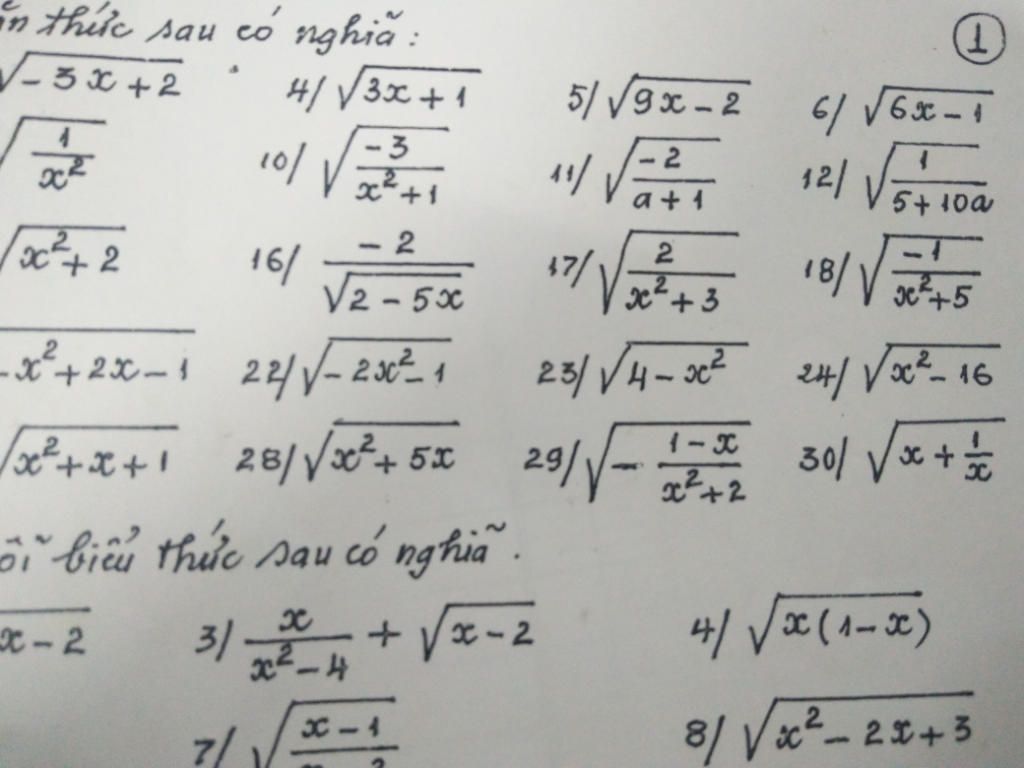 ①
thức sau có nghĩa:
√(-3x+2) 4/ √(3x+1) 5/ √(9x-2) 6/ √(6x-1)
√(1/x²) 10/ √(-3/(x²+1)) 11/ √(-2/(a+1)) 12/ √(1/(5+10a))
√(x²+2) 16/ -2/√(2-5x) 17/ √(2/(x²+3)) 18/ √(-1/(x²+5))
-x²+2x-1 22/ √(-2x²-1) 23/ √(4-x²) 24/ √(x²-16)
√(x²+x+1) 28/ √(x²+5x) 29/ √(-(1-x)/(x²+2)) 30/ √(x+1/x)
biểu thức sau có nghĩa.
x-2 3/ x/(x²-4) + √(x-2) 4/ √(x(1-x))
7/ √(x-1 8/ √(x²-2x+3)